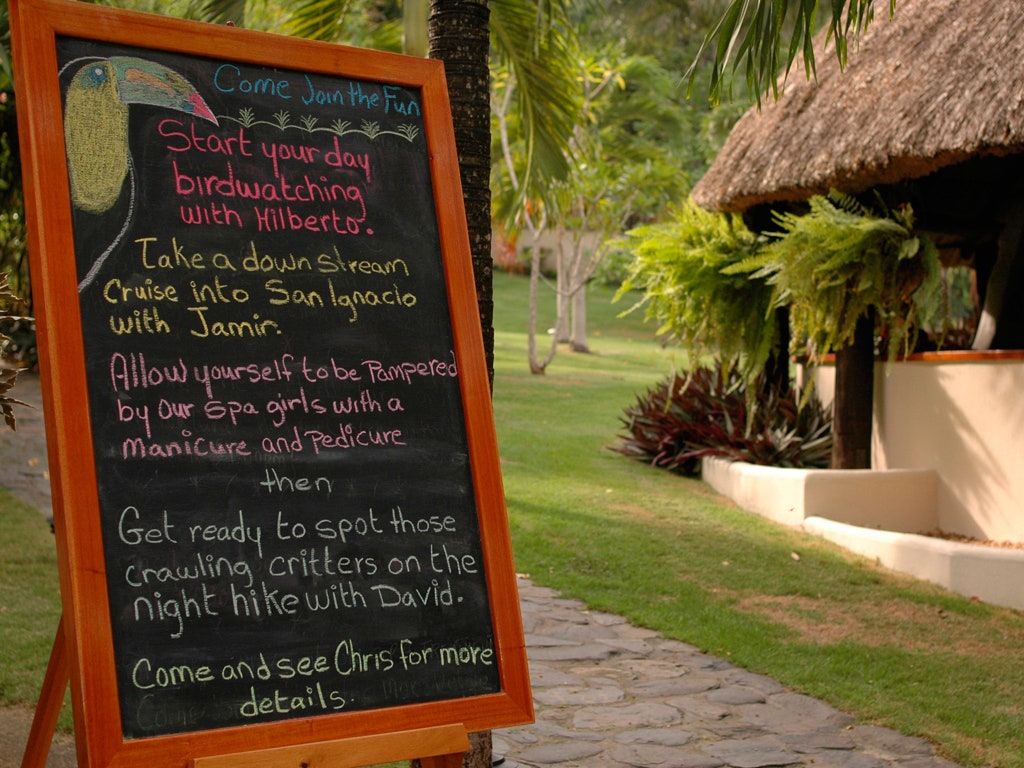 Come Join the Fun
Start your day
birdwatching
with Hilberto.
Take a down stream
Cruise into San Ignacio
with Jamir.
Allow yourself to be Pampered
by our spa girls with a
manicure and pedicure
then
Get ready to spot those
crawling critters on the
night hike with David.
Come and see Chris for more
details.